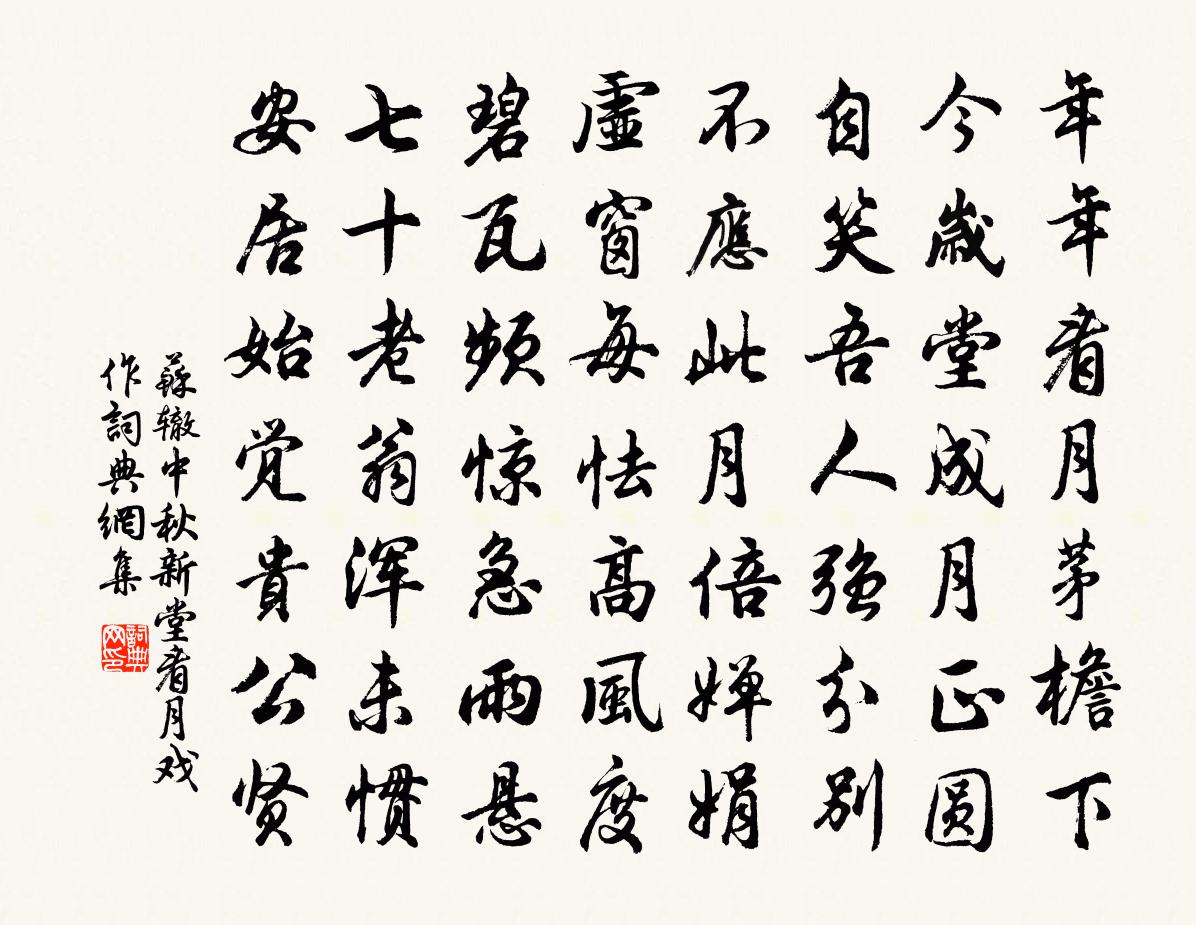 年年看月茅檐下
今歲堂成月正圓
自笑吾人強分別
不應此月倍嬋娟
虛窗每怯高風度
碧瓦頻惊急雨懸
七十老翁渾未慣
安居始覺貴公賢
蘇轍中秋新堂看月戏
作詞典網集
詞典网印